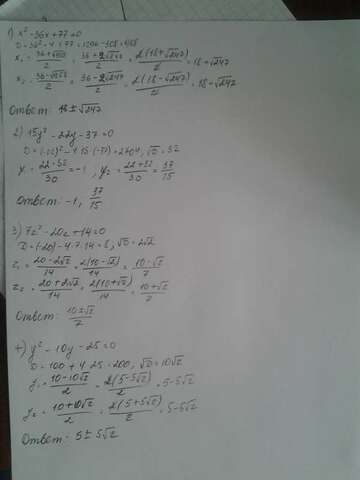 1) x² - 36x + 77 = 0
D = 36² - 4·77 = 1296 - 308 = 988
x₁ = (36+√988)/2 = (36+2√247)/2 = 2(18+√247)/2 = 18+√247
x₂ = (36-√988)/2 = (36-2√247)/2 = 2(18-√247)/2 = 18-√247
Ответ: 18 ± √247
2) 15y² - 22y - 37 = 0
D = (-22)² - 4·15·(-37) = 2704, √D = 52
y₁ = (22-52)/30 = -1, y₂ = (22+52)/30 = 37/15
Ответ: -1, 37/15
3) 7z² - 20z + 14 = 0
D = (-20) - 4·7·14 = 8, √D = 2√2
z₁ = (20-2√2)/14 = 2(10-√2)/14 = (10-√2)/7
z₂ = (20+2√2)/14 = 2(10+√2)/14 = (10+√2)/7
Ответ: (10±√2)/7
4) y² - 10y - 25 = 0
D = 100 + 4·25 = 200, √D = 10√2
y₁ = (10-10√2)/2 = 2(5-5√2)/2 = 5-5√2
y₂ = (10+10√2)/2 = 2(5+5√2)/2 = 5-5√2
Ответ: 5 ± 5√2